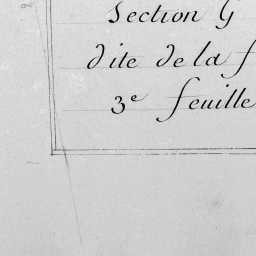 Section G
dite de la f
3e feuille